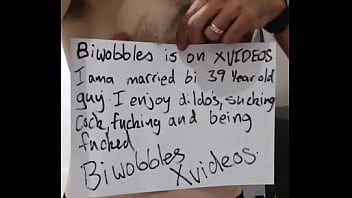 Biwobbles is on XVIDEOS
I am a married bi 39 Year old
guy. I enjoy dildo's, sucking
Cock, fucking and being
fucked
Biwobbles
Xvideos.